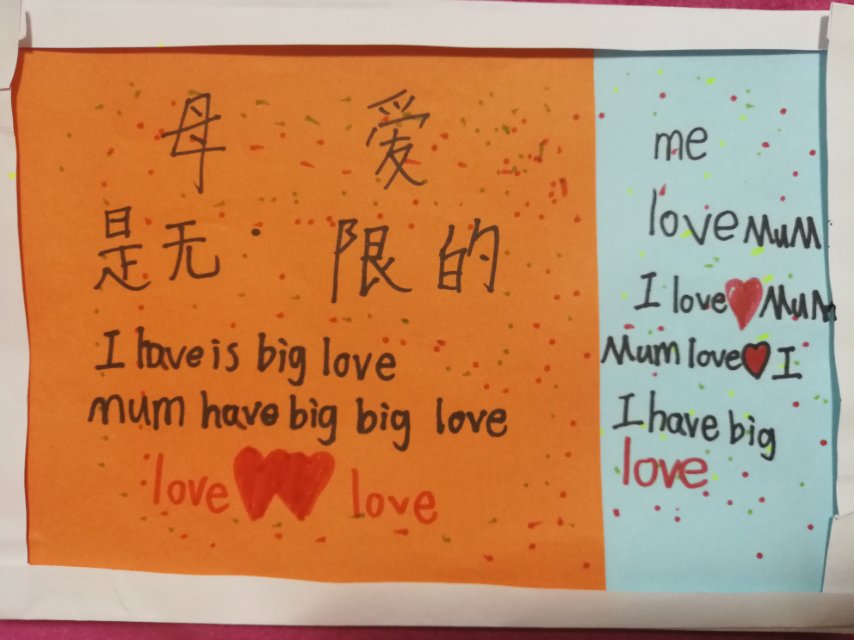 母 爱
是无 限的
I have is big love
mum have big big love
love love
me
love MuM
I love MuM
Mum love I
I have big
love